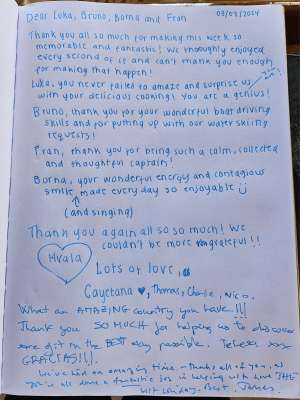 Dear Luka, Bruno, Borna and Fran 03/08/2024
Thank you all so much for making this week so
memorable and fantastic! We thoroughly enjoyed
every second of it and can't thank you enough
for making that happen!
Luka, you never failed to amaze and surprise us
with your delicious cooking! You are a genius!
Bruno, thank you for your wonderful boat driving
skills and for putting up with our water skiing
requests!
Fran, thank you for being such a calm, collected
and thoughtful captain!
Borna, your wonderful energy and contagious
smile made every day so enjoyable
(and singing)
Thank you again all so so much! We
couldn't be more grateful!!
Hvala
Lots of love,
Cayetana ♥, Thomas, Charlie, Nico.
What an AMAZING country you have!!!
Thank you SO MUCH for helping us to discover
some of it in the BEST way possible.
GRACIAS!!!).
We've had an amazing time. Thanks all of you, as
you've all done a fantastic job in helping with
holiday. Best, James.